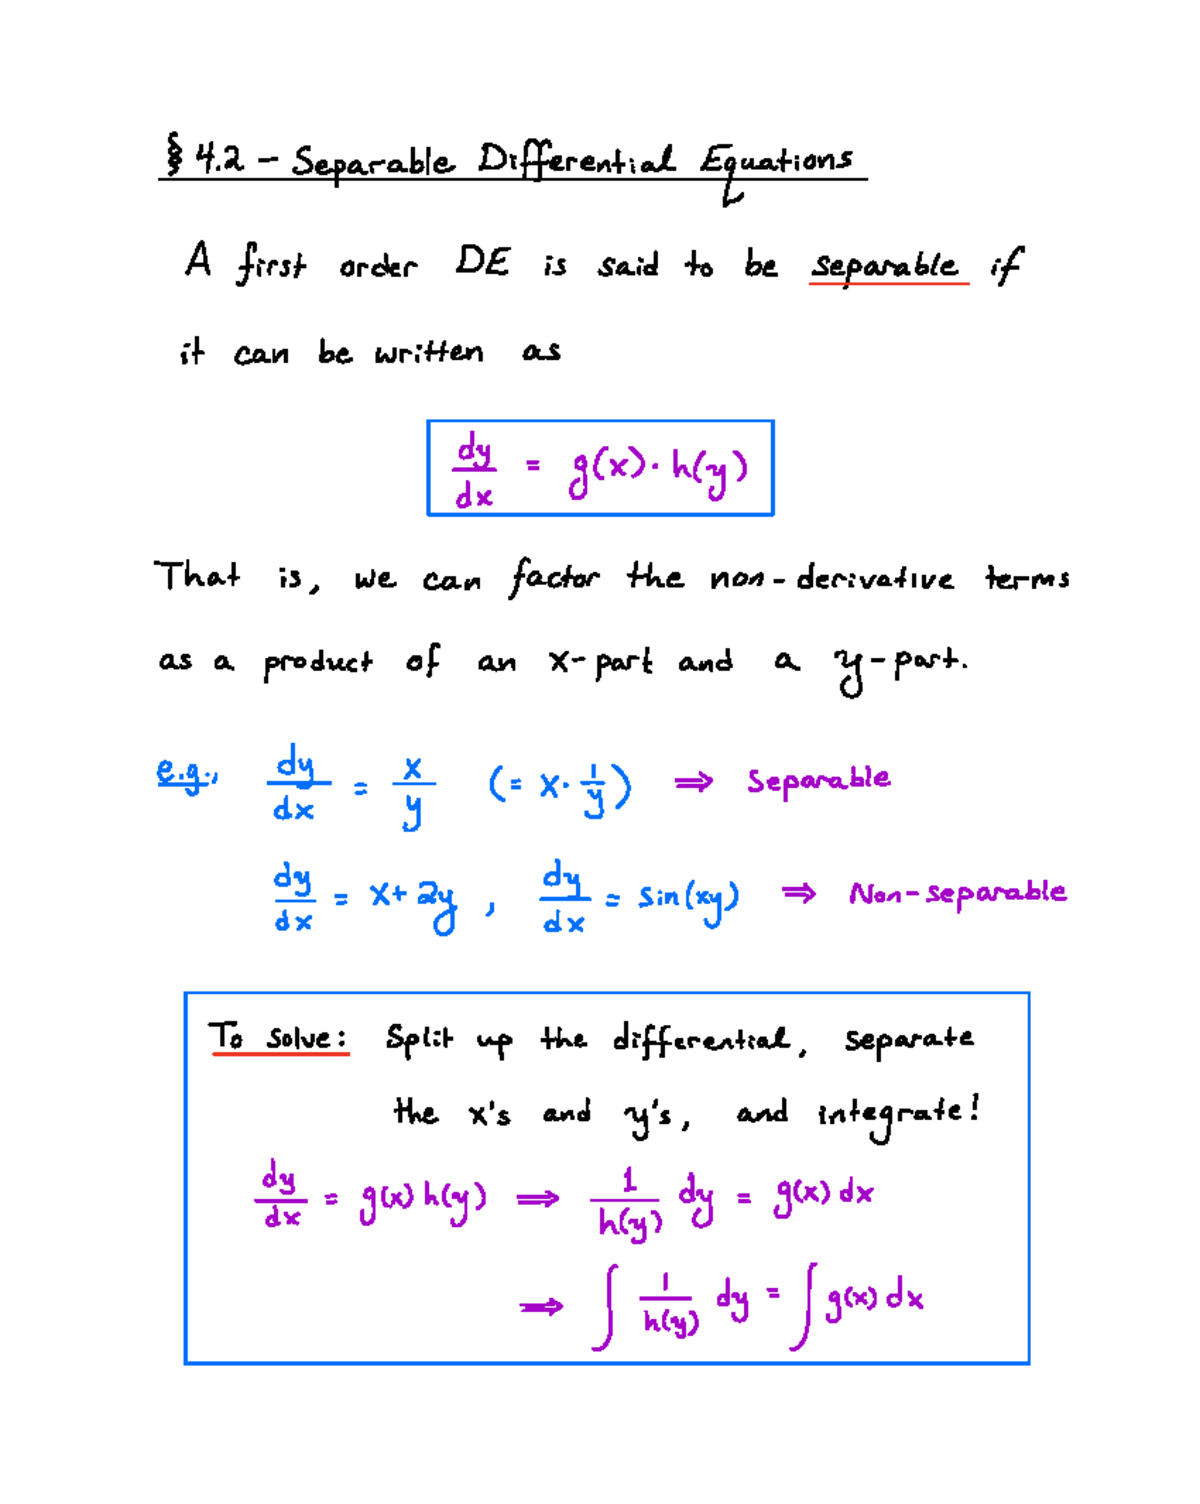 § 4.2 - Separable Differential Equations
A first order DE is said to be separable if
it can be written as
dy/dx = g(x) · h(y)
That is, we can factor the non-derivative terms
as a product of an x-part and a y-part.
e.g., dy/dx = x/y (= x · 1/y) ⇒ Separable
dy/dx = x + 2y , dy/dx = sin(xy) ⇒ Non-separable
To solve: Split up the differential, separate
the x's and y's, and integrate!
dy/dx = g(x) h(y) ⇒ 1/h(y) dy = g(x) dx
⇒ ∫ 1/h(y) dy = ∫ g(x) dx